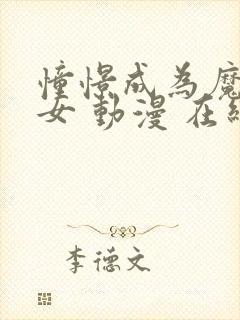 憧憬成為魔
女 動漫 在線
李德文